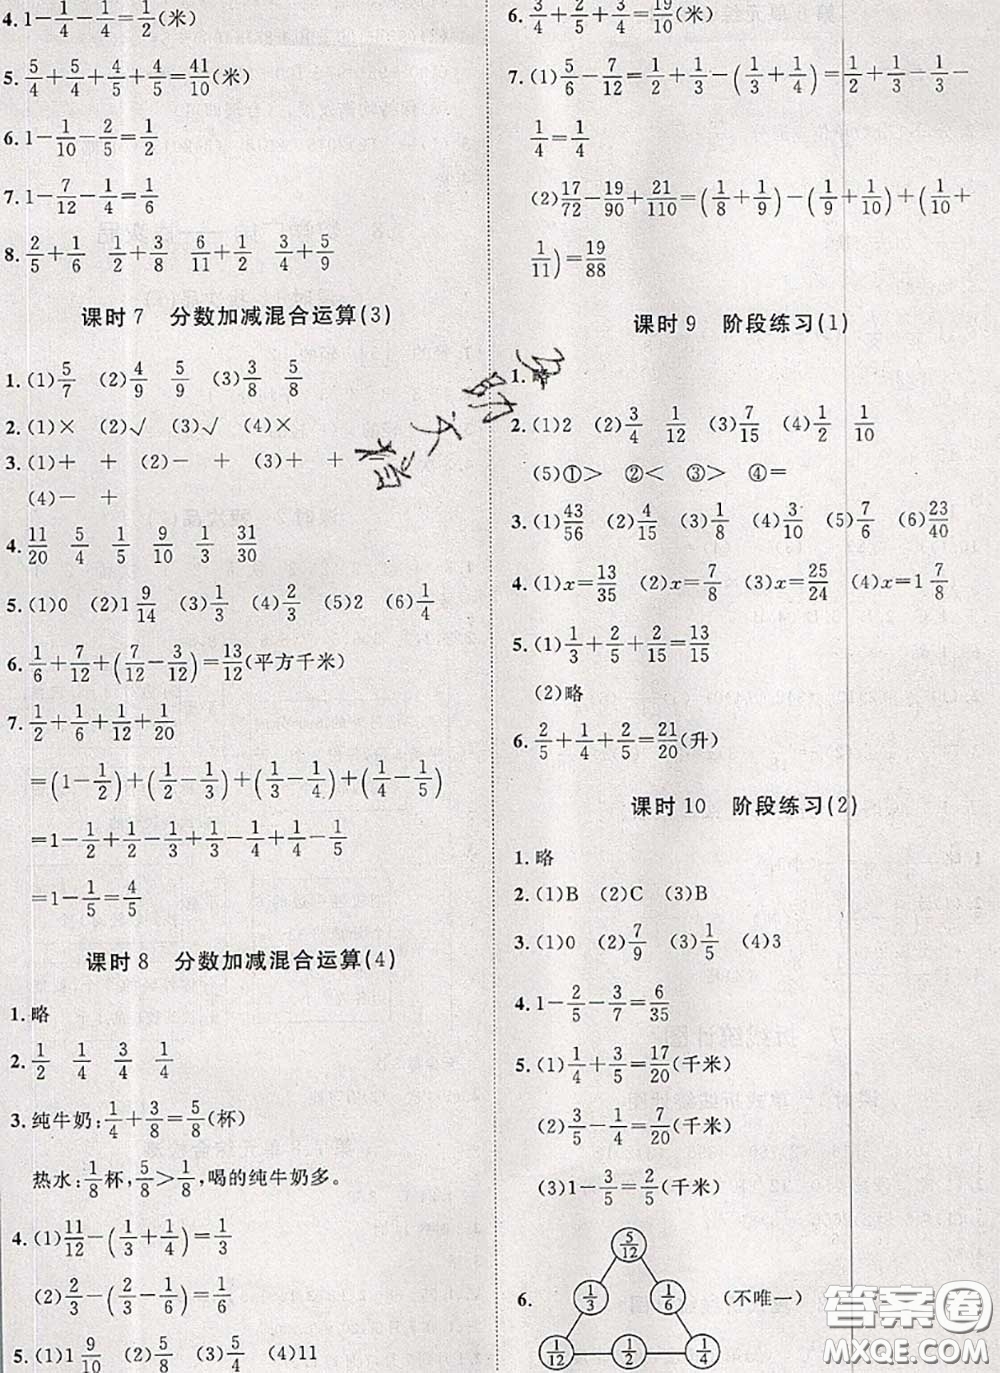 4. 1－1/4－1/4＝1/2(米)
5. 5/4＋5/4＋4/5＋4/5＝41/10(米)
6. 1－1/10－2/5＝1/2
7. 1－7/12－1/4＝1/6
8. 2/5＋1/6　1/2＋3/8　6/11＋1/2　3/4＋5/9
课时7　分数加减混合运算(3)
1. (1)5/7　(2)4/9　5/9　(3)3/8　5/8
2. (1)×　(2)√　(3)√　(4)×
3. (1)＋　＋　(2)－　－　(3)＋　＋
(4)－　＋
4. 11/20　5/4　1/5　9/10　1/3　31/30
5. (1)0　(2)1 9/14　(3)1/3　(4)2/3　(5)2　(6)1/4
6. 1/6＋7/12＋(7/12－3/12)＝13/12(平方千米)
7. 1/2＋1/6＋1/12＋1/20
＝(1－1/2)＋(1/2－1/3)＋(1/3－1/4)＋(1/4－1/5)
＝1－1/2＋1/2－1/3＋1/3－1/4＋1/4－1/5
＝1－1/5＝4/5
课时8　分数加减混合运算(4)
1. 略
2. 1/2　1/4　3/4　1/4
3. 纯牛奶:1/4＋3/8＝5/8(杯)
热水:1/8杯,5/8＞1/8,喝的纯牛奶多。
4. (1)11/12－(1/3＋1/4)＝1/3
(2)2/3－(2/3－1/6)＝1/6
5. (1)1 9/10　(2)5/8　(3)5/4　(4)11
6. 3/4＋2/5＋3/4＝19/10(米)
7. (1)5/6－7/12＝1/2＋1/3－(1/3＋1/4)＝1/2＋1/3－1/3－
1/4＝1/4
(2)17/72－19/90＋21/110＝(1/8＋1/9)－(1/9＋1/10)＋(1/10＋
1/11)＝19/88
课时9　阶段练习(1)
1. 略
2. (1)2　(2)3/4　1/12　(3)7/8　(4)1/2　1/10
(5)①＞　②＜　③＞　④＝
3. (1)43/56　(2)1/4　(3)1/8　(4)3/10　(5)7/6　(6)23/40
4. (1)x＝13/35　(2)x＝7/8　(3)x＝25/24　(4)x＝1 7/8
5. (1)1/3＋2/5＋2/15＝13/15
(2)略
6. 2/5＋1/4＋2/5＝21/20(升)
课时10　阶段练习(2)
1. 略
2. (1)B　(2)C　(3)B
3. (1)0　(2)7/9　(3)1/5　(4)3
4. 1－2/5－3/7＝6/35
5. (1)1/4＋3/5＝17/20(千米)
(2)3/5－1/4＝7/20(千米)
(3)1－3/5＝2/5(千米)
5/12
6. 1/3　1/6　(不唯一)
1/12　1/2　1/4
答案圈
MXQE.COM